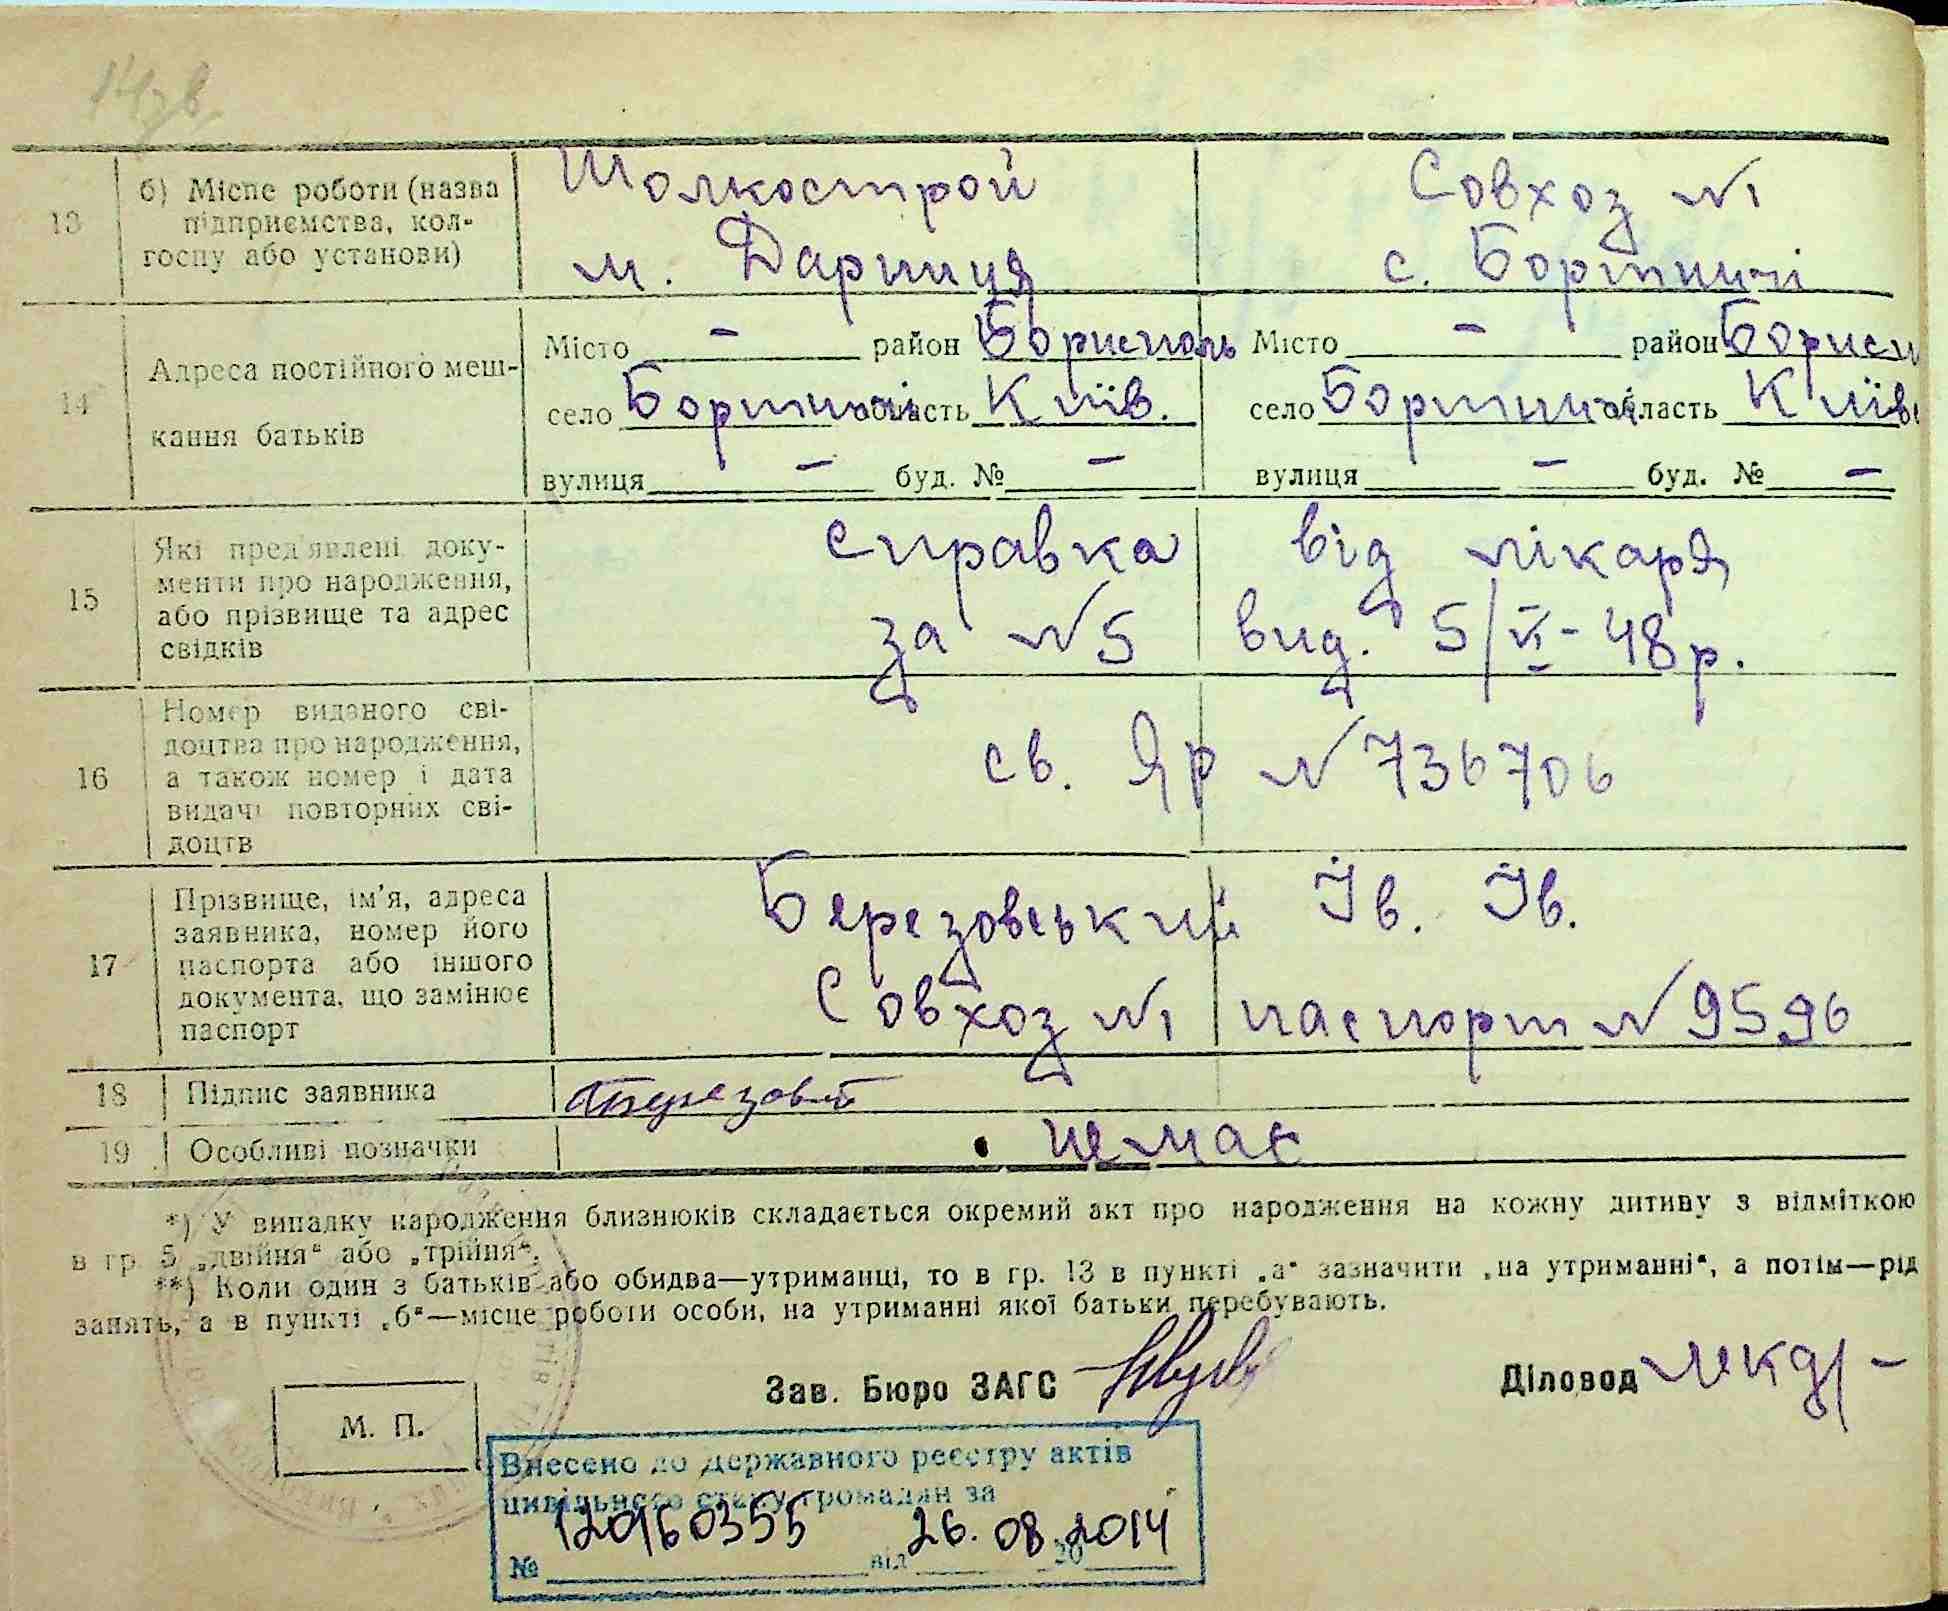 14зв.
13
б) Місце роботи (назва
підприємства, кол-
госпу або установи)
Шолкострой
м. Дарниця
Совхоз №1
с. Бортничі
14
Адреса постійного меш-
кання батьків
Місто — район Бориспольь
село Бортничі область Київ.
вулиця — буд. № —
Місто — район Борисп
село Бортничі область Київ
вулиця — буд. № —
15
Які пред'явлені доку-
менти про народження,
або прізвище та адрес
свідків
справка від лікаря
за №5 вид. 5/VI-48р.
16
Номер виданого сві-
доцтва про народження,
а також номер і дата
видачі повторних сві-
доцтв
св. Яр №736706
17
Прізвище, ім'я, адреса
заявника, номер його
паспорта або іншого
документа, що замінює
паспорт
Березовський Ів. Ів.
Совхоз №1 паспорт №9596
18
Підпис заявника
19
Особливі позначки
немає
*) У випадку народження близнюків складається окремий акт про народження на кожну дитину з відміткою
в гр. 5 „двійня“ або „трійня“.
**) Коли один з батьків або обидва—утриманці, то в гр. 13 в пункті „а“ зазначити „на утриманні“, а потім—рід
занять, а в пункті „б“—місце роботи особи, на утриманні якої батьки перебувають.
Зав. Бюро ЗАГС
Діловод
М. П.
Внесено до Державного реєстру актів
цивільного стану громадян за
№ 120160355 від 26.08.2014